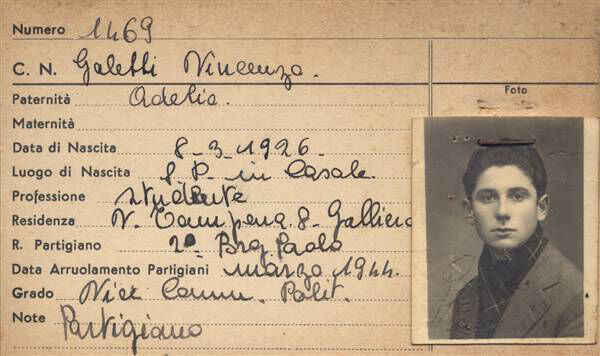 Numero 1469
C. N. Galetti Vincenzo.
Foto
Paternità Adelio.
Maternità
Data di Nascita 8-3-1926.
Luogo di Nascita S. P. in Casale.
Professione studente
Residenza V. 8. Galliera
R. Partigiano 2ª Brg. Paolo
Data Arruolamento Partigiani marzo 1944.
Grado Vice Comm. Polit.
Note Partigiano